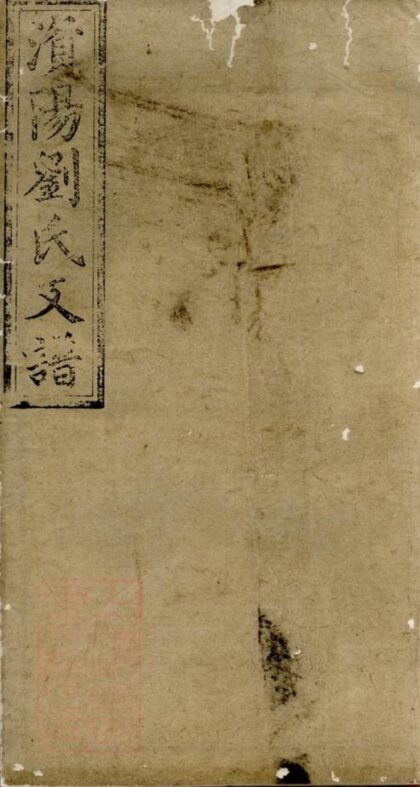 資陽劉氏支譜